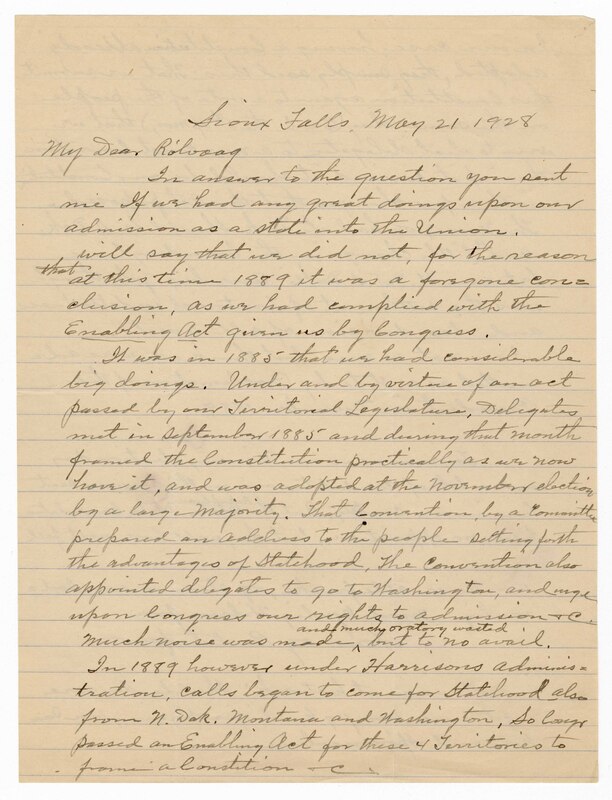 Sioux Falls, May 21 1928
My Dear Rölvaag
In answer to the question you sent
me If we had any great doings upon our
admission as a state into the Union.
will say that we did not, for the reason
that at this time 1889 it was a foregone con=
clusion, as we had complied with the
Enabling Act given us by Congress.
It was in 1885 that we had considerable
big doings. Under and by virtue of an act
passed by our Territorial Legislature, Delegates
met in September 1885 and during that month
framed the Constitution practically as we now
have it, and was adopted at the November election
by a large Majority. That Convention, by a Committee
prepared an address to the people setting forth
the advantages of Statehood, The Convention also
appointed delegates to go to Washington, and urge
upon Congress our rights to admission &c.
and much oratory wasted
Much noise was made ^ but to no avail.
In 1889 however under Harrisons adminis=
tration, calls began to come for Statehood also
from N. Dak. Montana and Washington, So Congr
passed an Enabling Act for these 4 Territories to
frame a Constition &c.